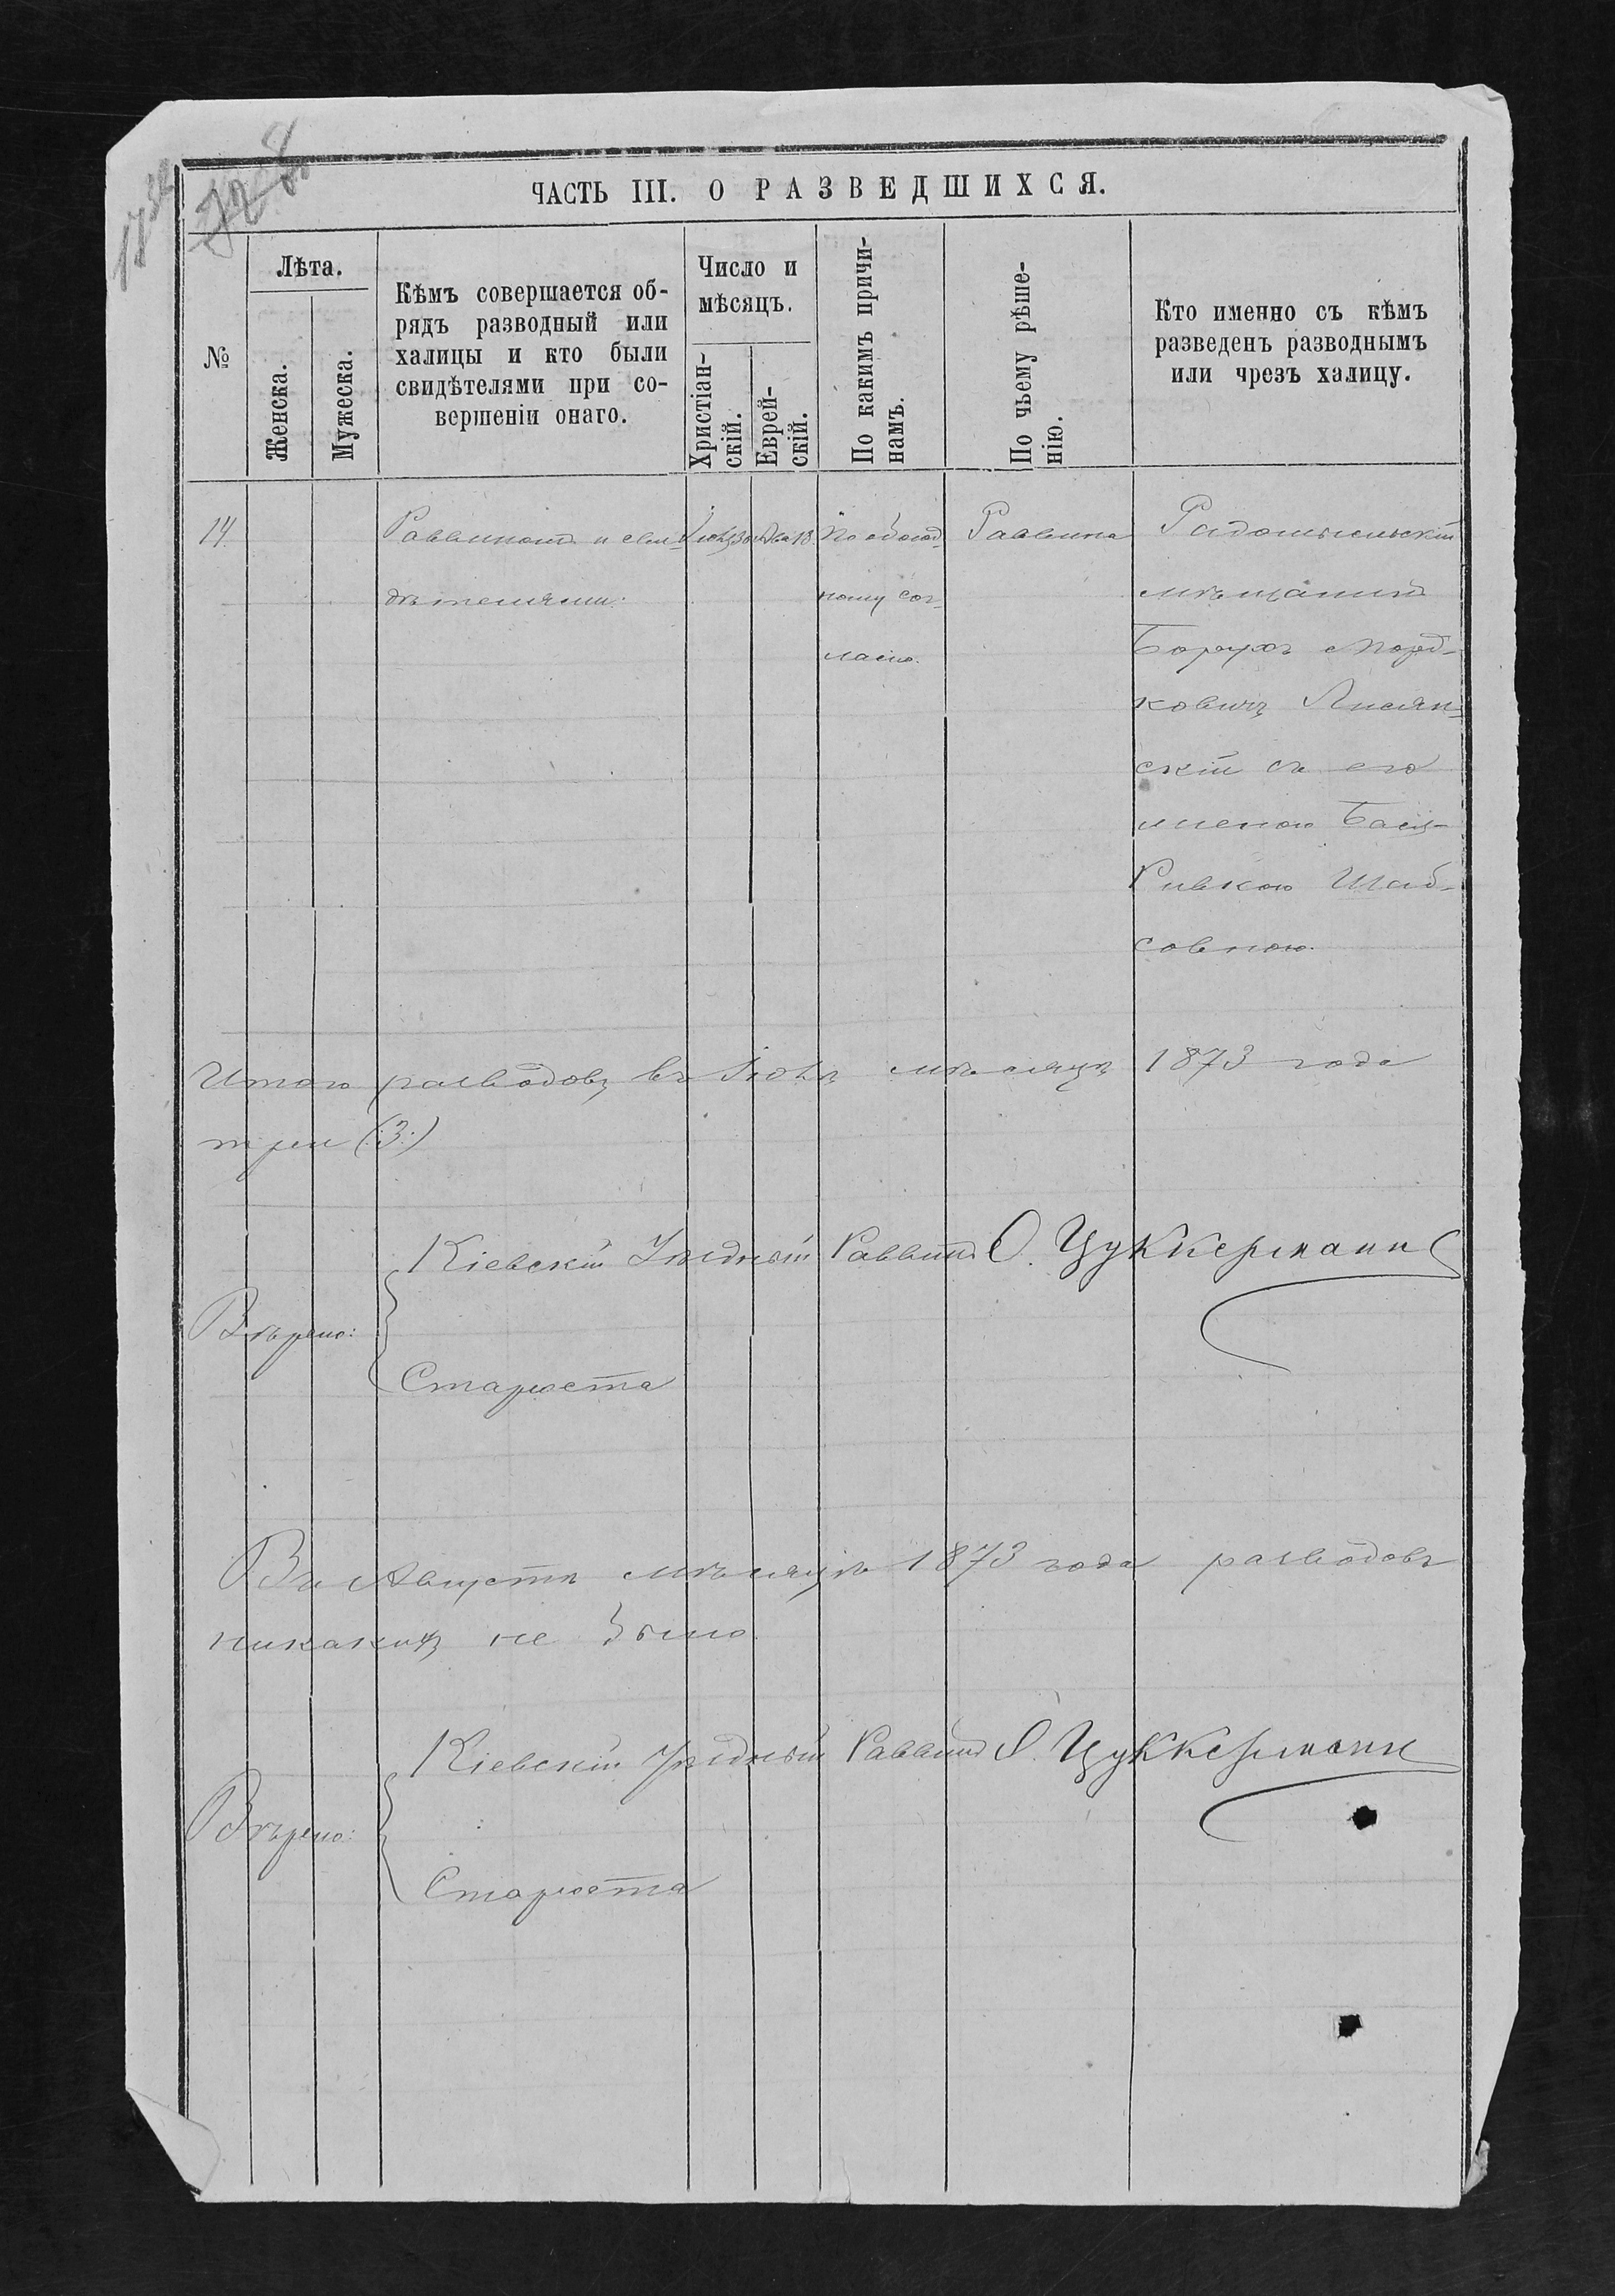 ЧАСТЬ III. О РАЗВЕДШИХСЯ.
№
Лѣта.
Женска.
Мужеска.
Кѣмъ совершается об-
рядъ разводный или
халицы и кто были
свидѣтелями при со-
вершеніи онаго.
Число и
мѣсяцъ.
Христіан-
скій.
Еврей-
скій.
По какимъ причи-
намъ.
По чьему рѣше-
нію.
Кто именно съ кѣмъ
разведенъ разводнымъ
или чрезъ халицу.
14
Раввиномъ и сви-
дѣтелями.
30
18
По обоюд-
ному сог-
ласію.
Раввина
Радомысльскій
мѣщанинъ
Борухъ Морд-
ковичъ Лисян-
скій съ его
женою Басею-
Ривкою Шаб-
совною.
Итого разводовъ въ Іюлѣ мѣсяцѣ 1873 года
три (3)
Вѣрно:
Кіевскій Уѣздный Раввинъ О. Цуккерманъ
Староста
Въ Августѣ мѣсяцѣ 1873 года разводовъ
никакихъ не было.
Вѣрно:
Кіевскій Уѣздный Раввинъ О. Цуккерманъ
Староста